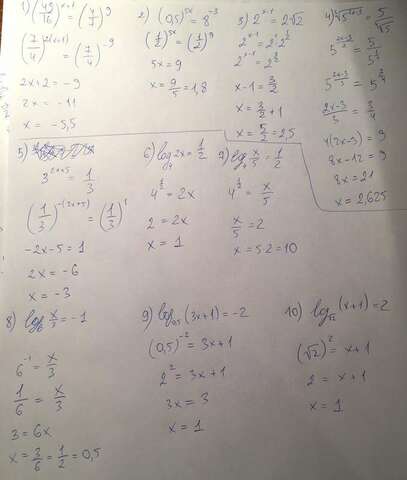 1) (49/16)^(x+1) = (4/7)^9
(7/4)^(2(x+1)) = (7/4)^(-9)
2x+2 = -9
2x = -11
x = -5,5
2) (0,5)^(5x) = 8^(-3)
(1/2)^(5x) = (1/2)^9
5x = 9
x = 9/5 = 1,8
3) 2^(x-1) = 2√2
2^(x-1) = 2^1 · 2^(1/2)
2^(x-1) = 2^(3/2)
x-1 = 3/2
x = 3/2 + 1
x = 5/2 = 2,5
5^((2x-3)/3) = 5^(3/4)
(2x-3)/3 = 3/4
4(2x-3) = 9
8x-12 = 9
8x = 21
x = 2,625
5)
3^(2x+5) = 1/3
(1/3)^(-(2x+5)) = (1/3)^1
-2x-5 = 1
2x = -6
x = -3
6) log₄ 2x = 1/2
4^(1/2) = 2x
2 = 2x
x = 1
7) log₄ x/5 = 1/2
4^(1/2) = x/5
x/5 = 2
x = 5·2 = 10
8) log₆ x/3 = -1
6^(-1) = x/3
1/6 = x/3
3 = 6x
x = 3/6 = 1/2 = 0,5
9) log₀,₅ (3x+1) = -2
(0,5)^(-2) = 3x+1
2^2 = 3x+1
3x = 3
x = 1
10) log_√2 (x+1) = 2
(√2)^2 = x+1
2 = x+1
x = 1